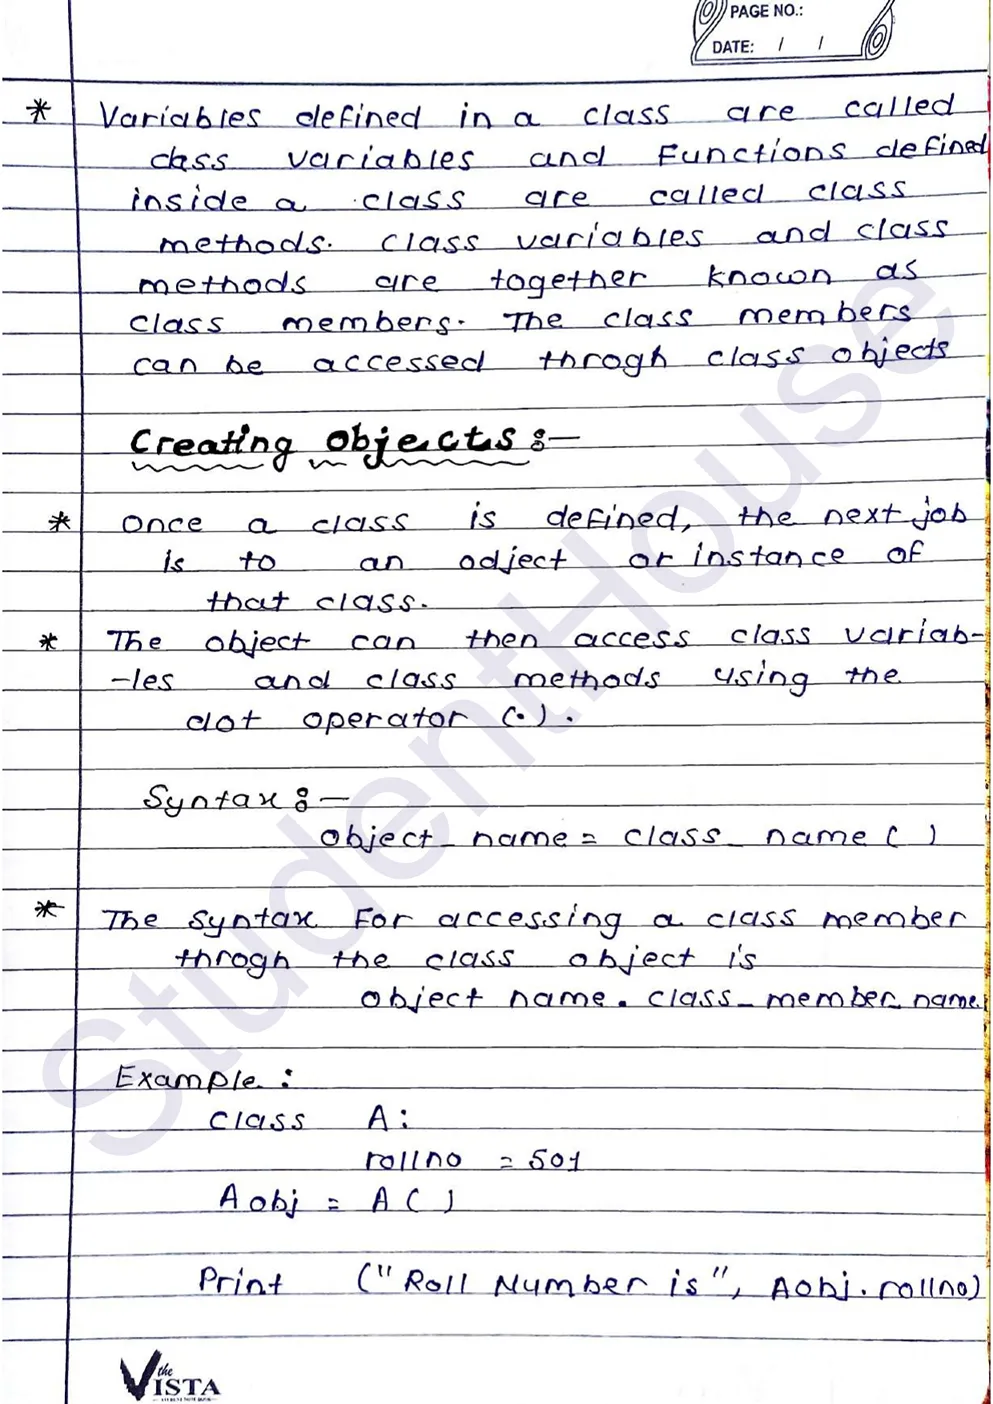 PAGE NO.:
DATE: / /
* Variables defined in a class are called
class variables and Functions defined
inside a class are called class
methods. class variables and class
methods are together known as
class members. The class members
can be accessed throgh class objects
Creating objects :-
* Once a class is defined, the next job
is to an odject or instance of
that class.
* The object can then access class variab-
-les and class methods using the
dot operator (.).
Syntax :-
object_name = class_name ( )
* The syntax For accessing a class member
throgh the class object is
object name. class_member_name.
Example :
class A:
rollno = 501
A obj = A ( )
Print ("Roll Number is", Aobj.rollno)
the VISTA
StudentHouse